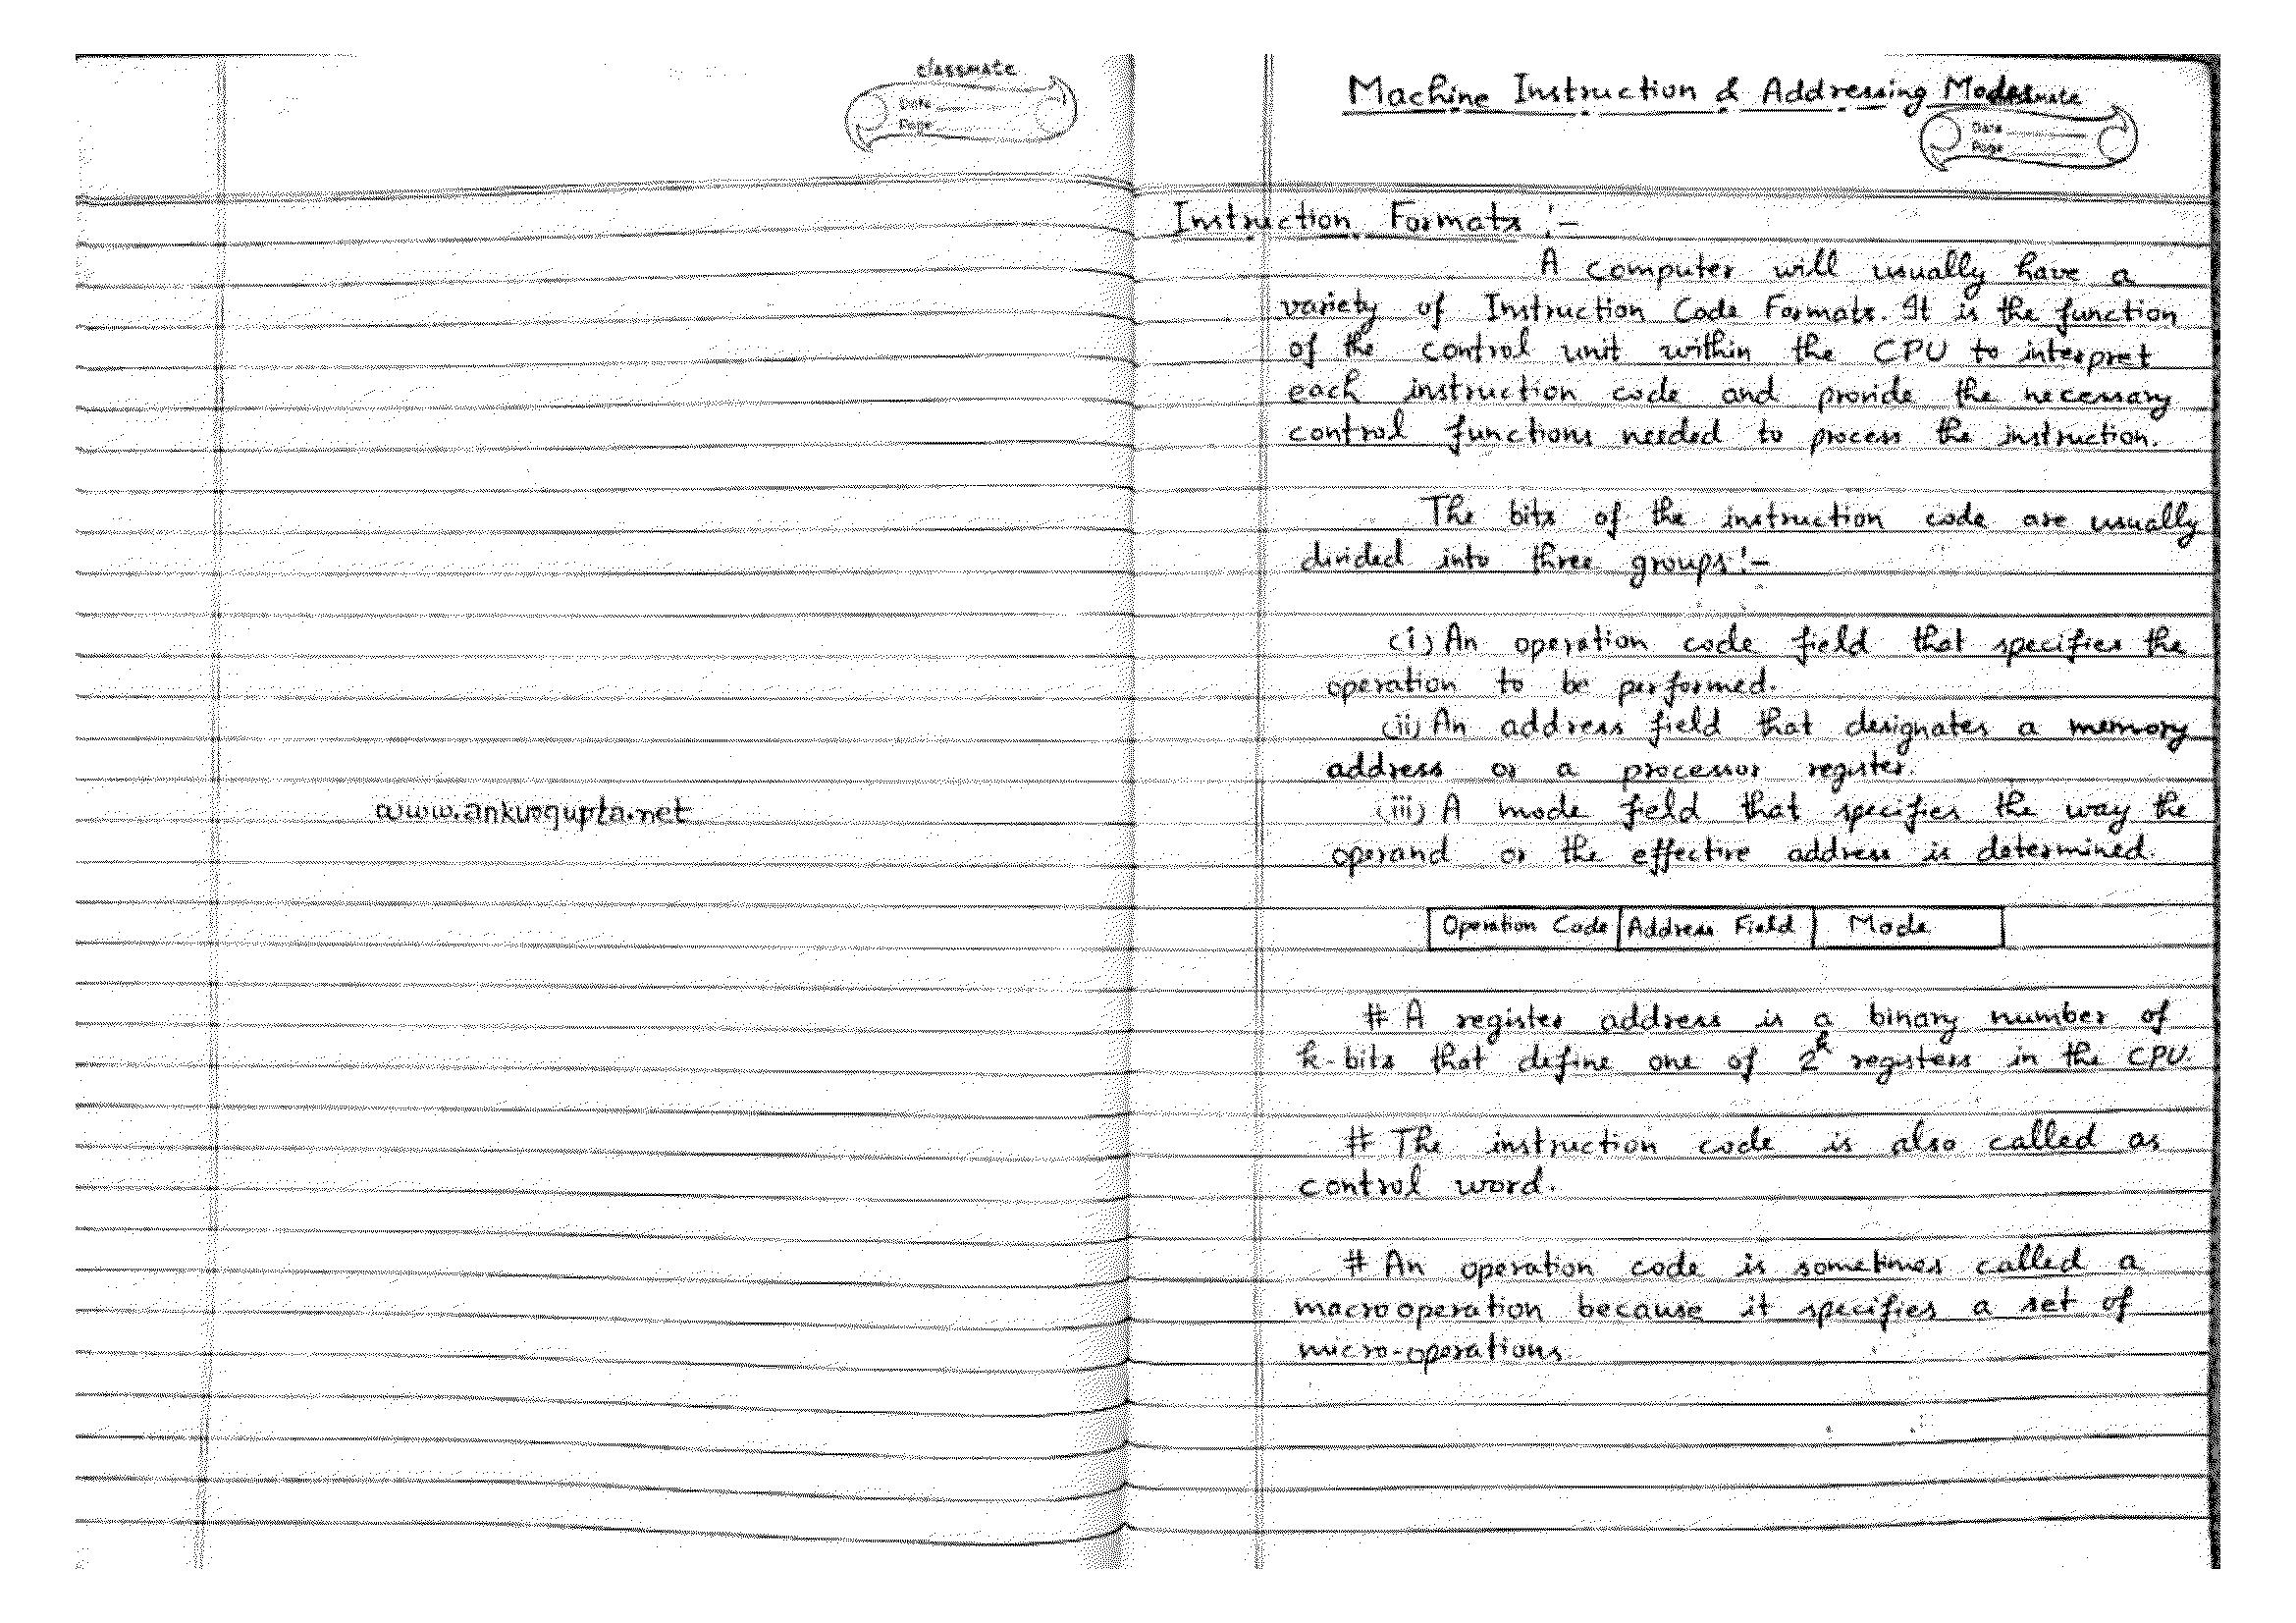 classmate
Date
Page
www.ankurgupta.net
Machine Instruction & Addressing Modes
classmate
Date
Page
Instruction Formats :-
A computer will usually have a
variety of Instruction Code Formats. It is the function
of the control unit within the CPU to interpret
each instruction code and provide the necessary
control functions needed to process the instruction.
The bits of the instruction code are usually
divided into three groups:-
(i) An operation code field that specifies the
operation to be performed.
(ii) An address field that designates a memory
address or a processor register.
(iii) A mode field that specifies the way the
operand or the effective address is determined.
Operation Code Address Field Mode
# A register address is a binary number of
k-bits that define one of 2^k registers in the CPU.
# The instruction code is also called as
control word.
# An operation code is sometimes called a
macrooperation because it specifies a set of
micro-operations.